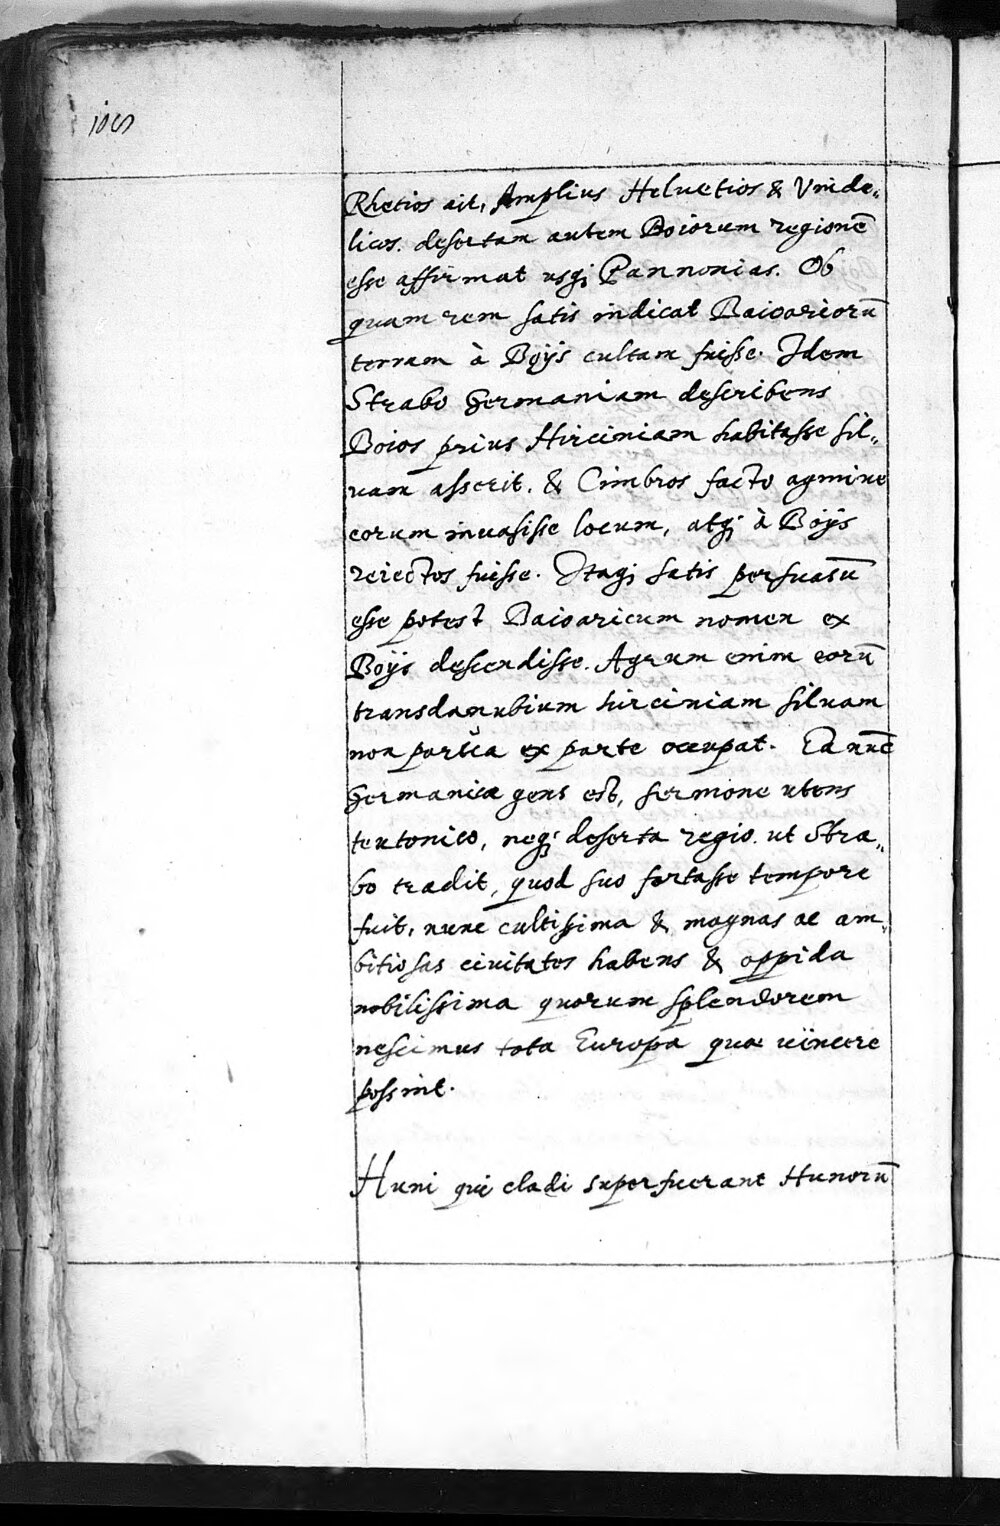 108
Rhetios ait, Amplius Heluetios & Vnide„
licos. desertam autem Boiorum regionē
esse affirmat usq; Pannonias. Ob
quam rem satis indicat Baioariorū
terram à Boÿs cultam fuisse. Idem
Strabo Germaniam describens
Boios prius Hirciniam habitasse sil„
uam asserit. & Cimbros facto agmine
eorum inuasisse locum, atq; à Boÿs
reiectos fuisse. Itaq; satis persuasū
esse potest Baioaricum nomen ex
Boÿs descendisse. Agrum enim eorū
transdanubium hirciniam siluam
non paruā ex parte occupat. Ea nūc
Germanica gens est, sermone utens
teutonico, neq; deserta regio. ut Stra„
bo tradit, quod suo fortasse tempore
fuit, nunc cultissima & magnas ac am„
bitiosas ciuitates habens & oppida
nobilissima quorum splendorem
nescimus tota Europa quae uincere
possint.
Huni qui cladi superfuerant Hunorū